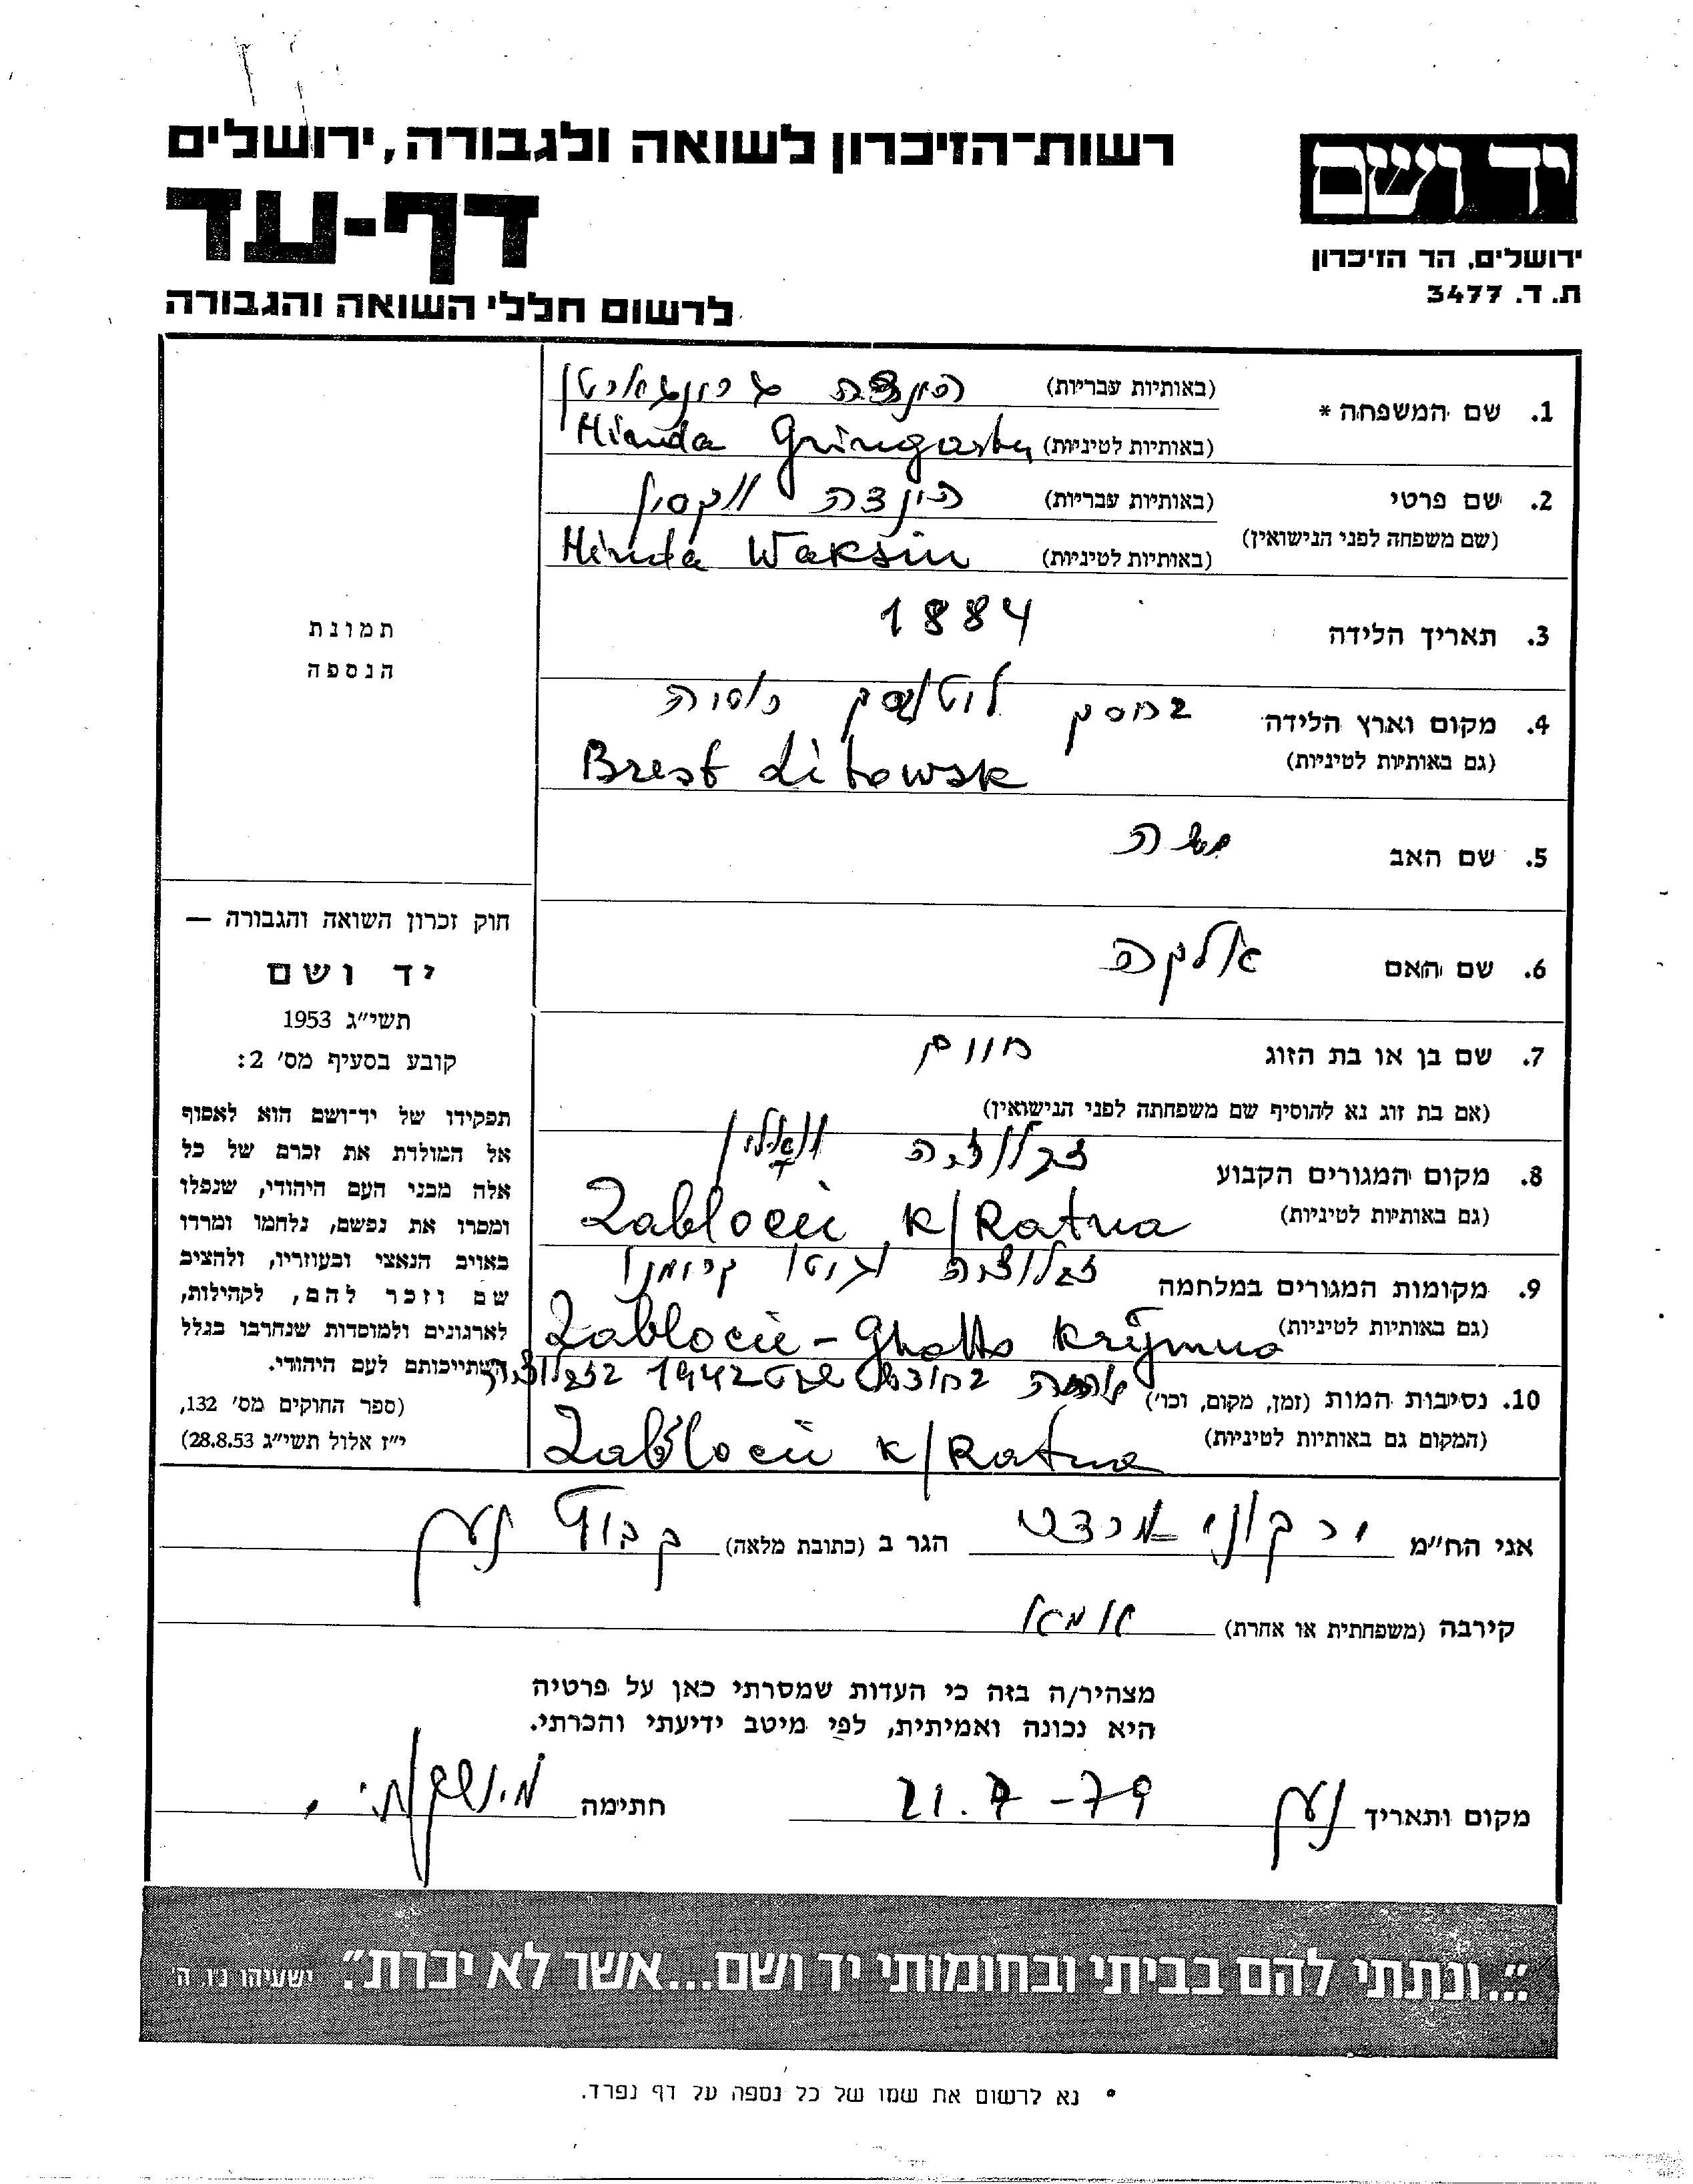 יד ושם
ירושלים, הר הזיכרון
ת. ד. 3477
רשות־הזיכרון לשואה ולגבורה, ירושלים
דף-עד
לרשום חללי השואה והגבורה
1. שם המשפחה * (באותיות עבריות) הינדה
(באותיות לטיניות) Hinda
2. שם פרטי (באותיות עבריות) הינדה וקסין
(שם משפחה לפני הנישואין) (באותיות לטיניות) Hinda Waksin
3. תאריך הלידה 1884
4. מקום וארץ הלידה בריסק
(גם באותיות לטיניות) Brest Litowsk
5. שם האב משה
6. שם האם אלקה
7. שם בן או בת הזוג חיים
(אם בת זוג נא להוסיף שם משפחתה לפני הנישואין)
8. מקום המגורים הקבוע
(גם באותיות לטיניות) Zablocie k/Ratna
9. מקומות המגורים במלחמה
(גם באותיות לטיניות) Zablocie - Ghetto
10. נסיבות המות (זמן, מקום, וכו') 1942
(המקום גם באותיות לטיניות) Zablocie k/Ratna
תמונת
הנספה
חוק זכרון השואה והגבורה —
יד ושם
תשי״ג 1953
קובע בסעיף מס' 2:
תפקידו של יד־ושם הוא לאסוף
אל המולדת את זכרם של כל
אלה מבני העם היהודי, שנפלו
ומסרו את נפשם, נלחמו ומרדו
באויב הנאצי ובעוזריו, ולהציב
שם וזכר להם, לקהילות,
לארגונים ולמוסדות שנחרבו בגלל
השתייכותם לעם היהודי.
(ספר החוקים מס' 132,
י״ז אלול תשי״ג 28.8.53)
אני הח״מ הגר ב (כתובת מלאה) קבוץ נען
קירבה (משפחתית או אחרת)
מצהיר/ה בזה כי העדות שמסרתי כאן על פרטיה
היא נכונה ואמיתית, לפי מיטב ידיעתי והכרתי.
מקום ותאריך נען 21.7-79 חתימה
״...ונתתי להם בביתי ובחומותי יד ושם...אשר לא יכרת״. ישעיהו נ״ו, ה'
* נא לרשום את שמו של כל נספה על דף נפרד.